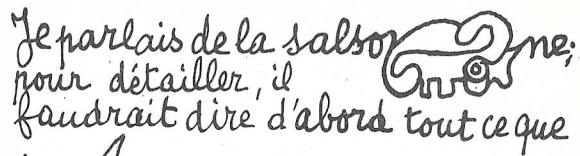 Je parlais de la salso ne;
pour détailler, il
faudrait dire d'abord tout ce que